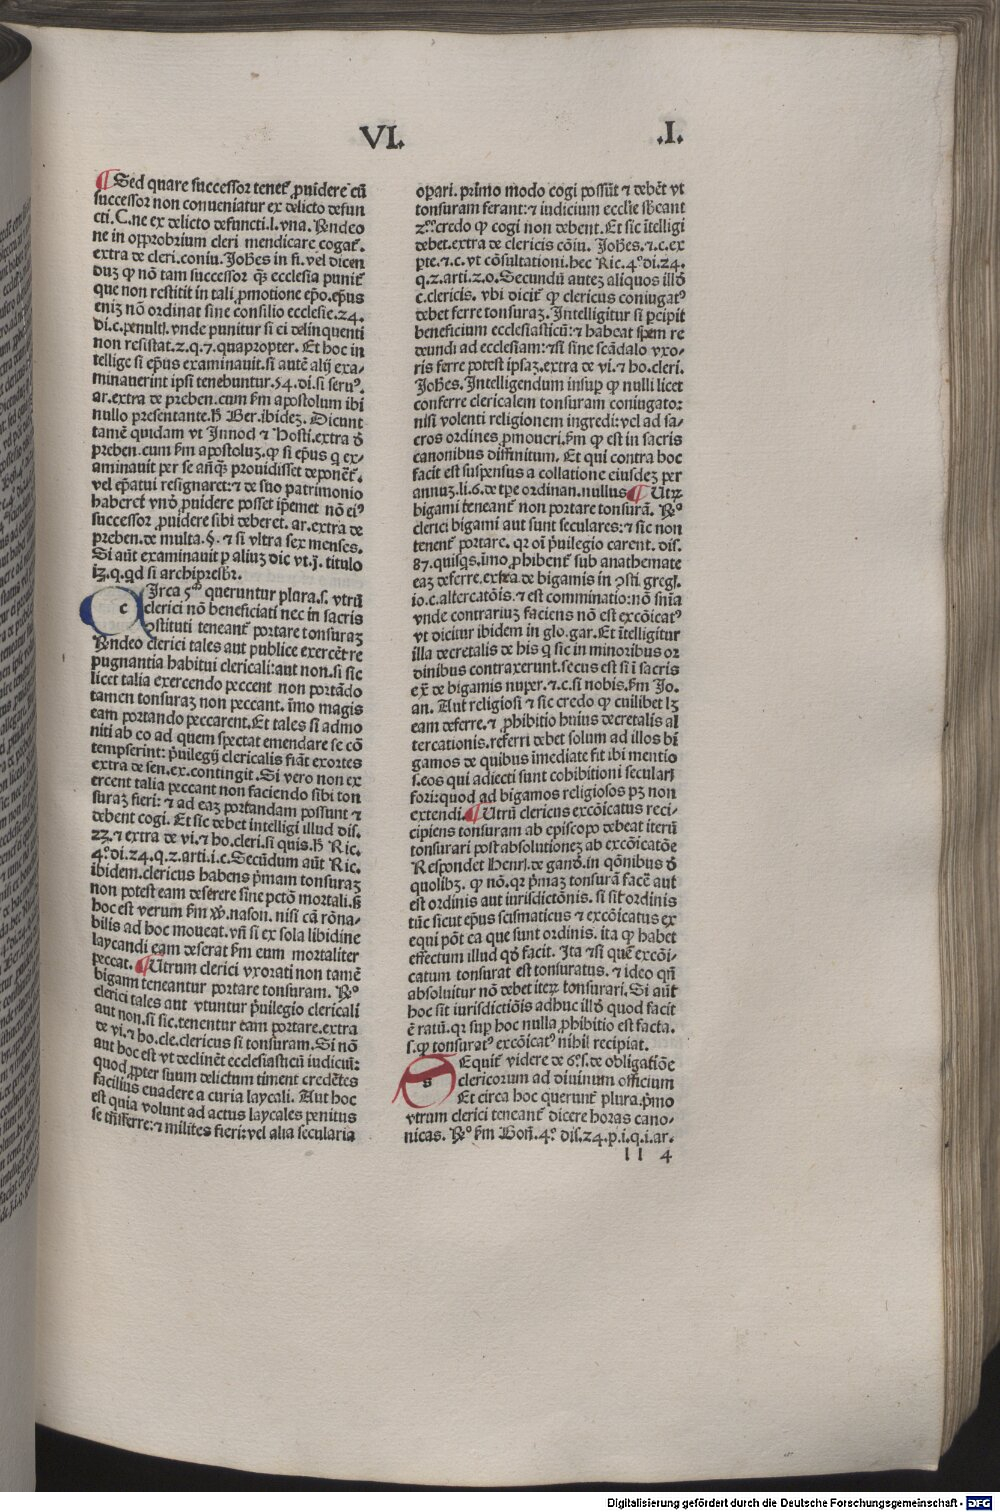 VI.
.I.
¶ Sed quare successor tenet᷑ ꝓuidere cū
successor non conueniatur ex delicto defun
cti. C. ne ex delicto defuncti. l. vna. Rñdeo
ne in opprobrium cleri mendicare cogat᷑.
extra de cleri. coniu. Johēs in fi. vel dicen
duȝ ꝙ nō tam successor qȝ ecclesia punit᷑
que non restitit in tali ꝓmotione ep̄o. ep̄us
eniȝ nō ordinat sine consilio ecclesie. 24.
di. c. penultī. vnde punitur si ei delinquenti
non resistat. 2. q. 7. quapropter. Et hoc in
tellige si ep̄us examinauit. si autē alij exa-
minauerint ipsi tenebuntur. 54. di. si seruꝰ.
ar. extra de preben. cum ẜm apostolum ibi
nullo presentante. h̄ Ber. ibideȝ. Dicunt
tamē quidam vt Innoc̄ ⁊ Hosti. extra d̄
preben. cum ẜm apostoluȝ. ꝙ si ep̄us q ex-
aminauit per se añqȝ prouidisset deponēt᷑.
vel ep̄atui resignaret: ⁊ de suo patrimonio
haberet vnō ꝓuidere posset ip̄emet nō eiꝰ
successor ꝓuidere sibi deberet. ar. extra de
preben. de multa. §. ⁊ si vltra sex menses.
Si aūt examinauit ꝑ aliuȝ dic vt. j. titulo
iȝ. q. qd si archipresbr̄.
c Irca 5ᵐ queruntur plura. s. vtrū
clerici nō beneficiati nec in sacris
ↄstituti teneant᷑ portare tonsuraȝ
Rñdeo clerici tales aut publice exercēt re
pugnantia habitui clericali: aut non. si sic
licet talia exercendo peccent non portādo
tamen tonsuraȝ non peccant. īmo magis
eam portando peccarent. Et tales si admo
niti ab eo ad quem spectat emendare se cō
tempserint: p̄uilegij clericalis fiāt exortes
extra de sen. ex. contingit. Si vero non ex
ercent talia peccant non faciendo sibi ton
suraȝ fieri: ⁊ ad eaȝ portandam possunt ⁊
debent cogi. Et sic debet intelligi illud dis.
23. ⁊ extra de vi. ⁊ ho. cleri. si quis. h̄ Ric.
4ͦ. di. 24. q. 2. arti. i. c. Secūdum aūt Ric.
ibidem. clericus habens p̄mam tonsuraȝ
non potest eam deserere sine pctō mortali. ẜ
hoc est verum ẜm W. nason. nisi cā rōna-
bilis ad hoc moueat. vñ si ex sola libidine
laycandi eam deserat ẜm eum mortaliter
peccat. ¶ Utrum clerici vxorati non tamē
bigami teneantur portare tonsuram. Rͦ
clerici tales aut vtuntur p̄uilegio clericali
aut non. si sic. tenentur eam portare. extra
de vi. ⁊ ho. cle. clericus si tonsuram. Si nō
aut hoc est vt declinēt ecclesiasticū iudiciū:
quod ꝓpter suum delictum timent credētes
facilius euadere a curia laycali. Aut hoc
est quia volunt ad actus laycales penitus
se trāsferre: ⁊ milites fieri: vel alia secularia
operari. primo modo cogi possūt ⁊ debēt vt
tonsuram ferant: ⁊ iudicium ecclie sbeant
2ͦ credo ꝙ cogi non debent. Et sic ītelligi
debet. extra de clericis cōiu. Johēs. ⁊. c. ex
pte. ⁊. c. vt cōsultationi. hec Ric. 4ͦ di. 24.
q. 2. arti. 2. o. Secundū auteȝ aliquos illd̄
c. clericis. vbi dicit᷑ ꝙ clericus coniugatꝰ
debet ferre tonsuraȝ. Intelligitur si ꝑcipit
beneficium ecclesiasticū: ⁊ habeat spem re
deundi ad ecclesiam: ⁊ si sine scādalo vxo-
ris ferre potest ipsaȝ. extra de vi. ⁊ ho. cleri.
Johēs. Intelligendum insuꝑ ꝙ nulli licet
conferre clericalem tonsuram coniugator
nisi volenti religionem ingredi: vel ad sa-
cros ordines ꝓmoueri. ẜm ꝙ est in sacris
canonibus diffinitum. Et qui contra hoc
facit est suspensus a collatione eiusdeȝ per
annuȝ. li. 6. de tp̄e ordinan. nullus ¶ Utrꝝ
bigami teneant᷑ non portare tonsurā. Rͦ
clerici bigami aut sunt seculares: ⁊ sic non
tenent᷑ portare. qr oī p̄uilegio carent. dis.
87. quisqs. īmo ꝓhibent᷑ sub anathemate
eaȝ deferre. extra de bigamis in ↄsti. gregī.
io. c. altercatōis. ⁊ est comminatio: nō snīa
vnde contrariuȝ faciens nō est excōicatꝰ
vt dicitur ibidem in glo. gar. Et ītelligitur
illa decretalis de his q sic in minoribus or
dinibus contraxerunt. secus est si ī sacris
ex̄ de bigamis nuper. ⁊. c. si nobis. ẜm Jo.
an. Aut religiosi ⁊ sic credo ꝙ cuilibet lȝ
eam deferre. ⁊ ꝓhibitio huius decretalis al
tercationis. referri debet solum ad illos bī
gamos de quibus īmediate fit ibi mentio
s. eos qui adiecti sunt cohibitioni seculari
fori: quod ad bigamos religiosos pȝ non
extendi. ¶ Utrū clericus excōicatus reci-
cipiens tonsuram ab episcopo debeat iterū
tonsurari post absolutioneȝ ab excōicatōe
Respondet Henri. de gand̄. in qōnibus d̄
quolibȝ. ꝙ nō. qr p̄maȝ tonsurā facē aut
est ordinis aut iurisdictōnis. si sit᷑ ordinis
tūc sicut ep̄us scismaticus ⁊ excōicatus ex
equi pōt ea que sunt ordinis. ita ꝙ habet
effectum illud qd̄ facit. Ita ⁊ si quē excōi-
catum tonsurat est tonsuratus. ⁊ ideo qñ
absoluitur nō debet iterꝝ tonsurari. Si aūt
hoc sit iurisdictiōis adhuc illd̄ quod facit
ē ratū. qr suꝑ hoc nulla ꝓhibitio est facta.
s. ꝙ tonsuratꝰ excōicatꝰ nihil recipiat.
s Equit᷑ videre de 6ͦ. s. de obligatiōe
clericorum ad diuinum officium
Et circa hoc querunt᷑ plura. p̄mo
vtrum clerici teneant᷑ dicere horas cano-
nicas. Rͦ ẜm Boñ. 4ͦ. dis. 24. p. i. q. i. ar.
ll 4
Digitalisierung gefördert durch die Deutsche Forschungsgemeinschaft - DFG